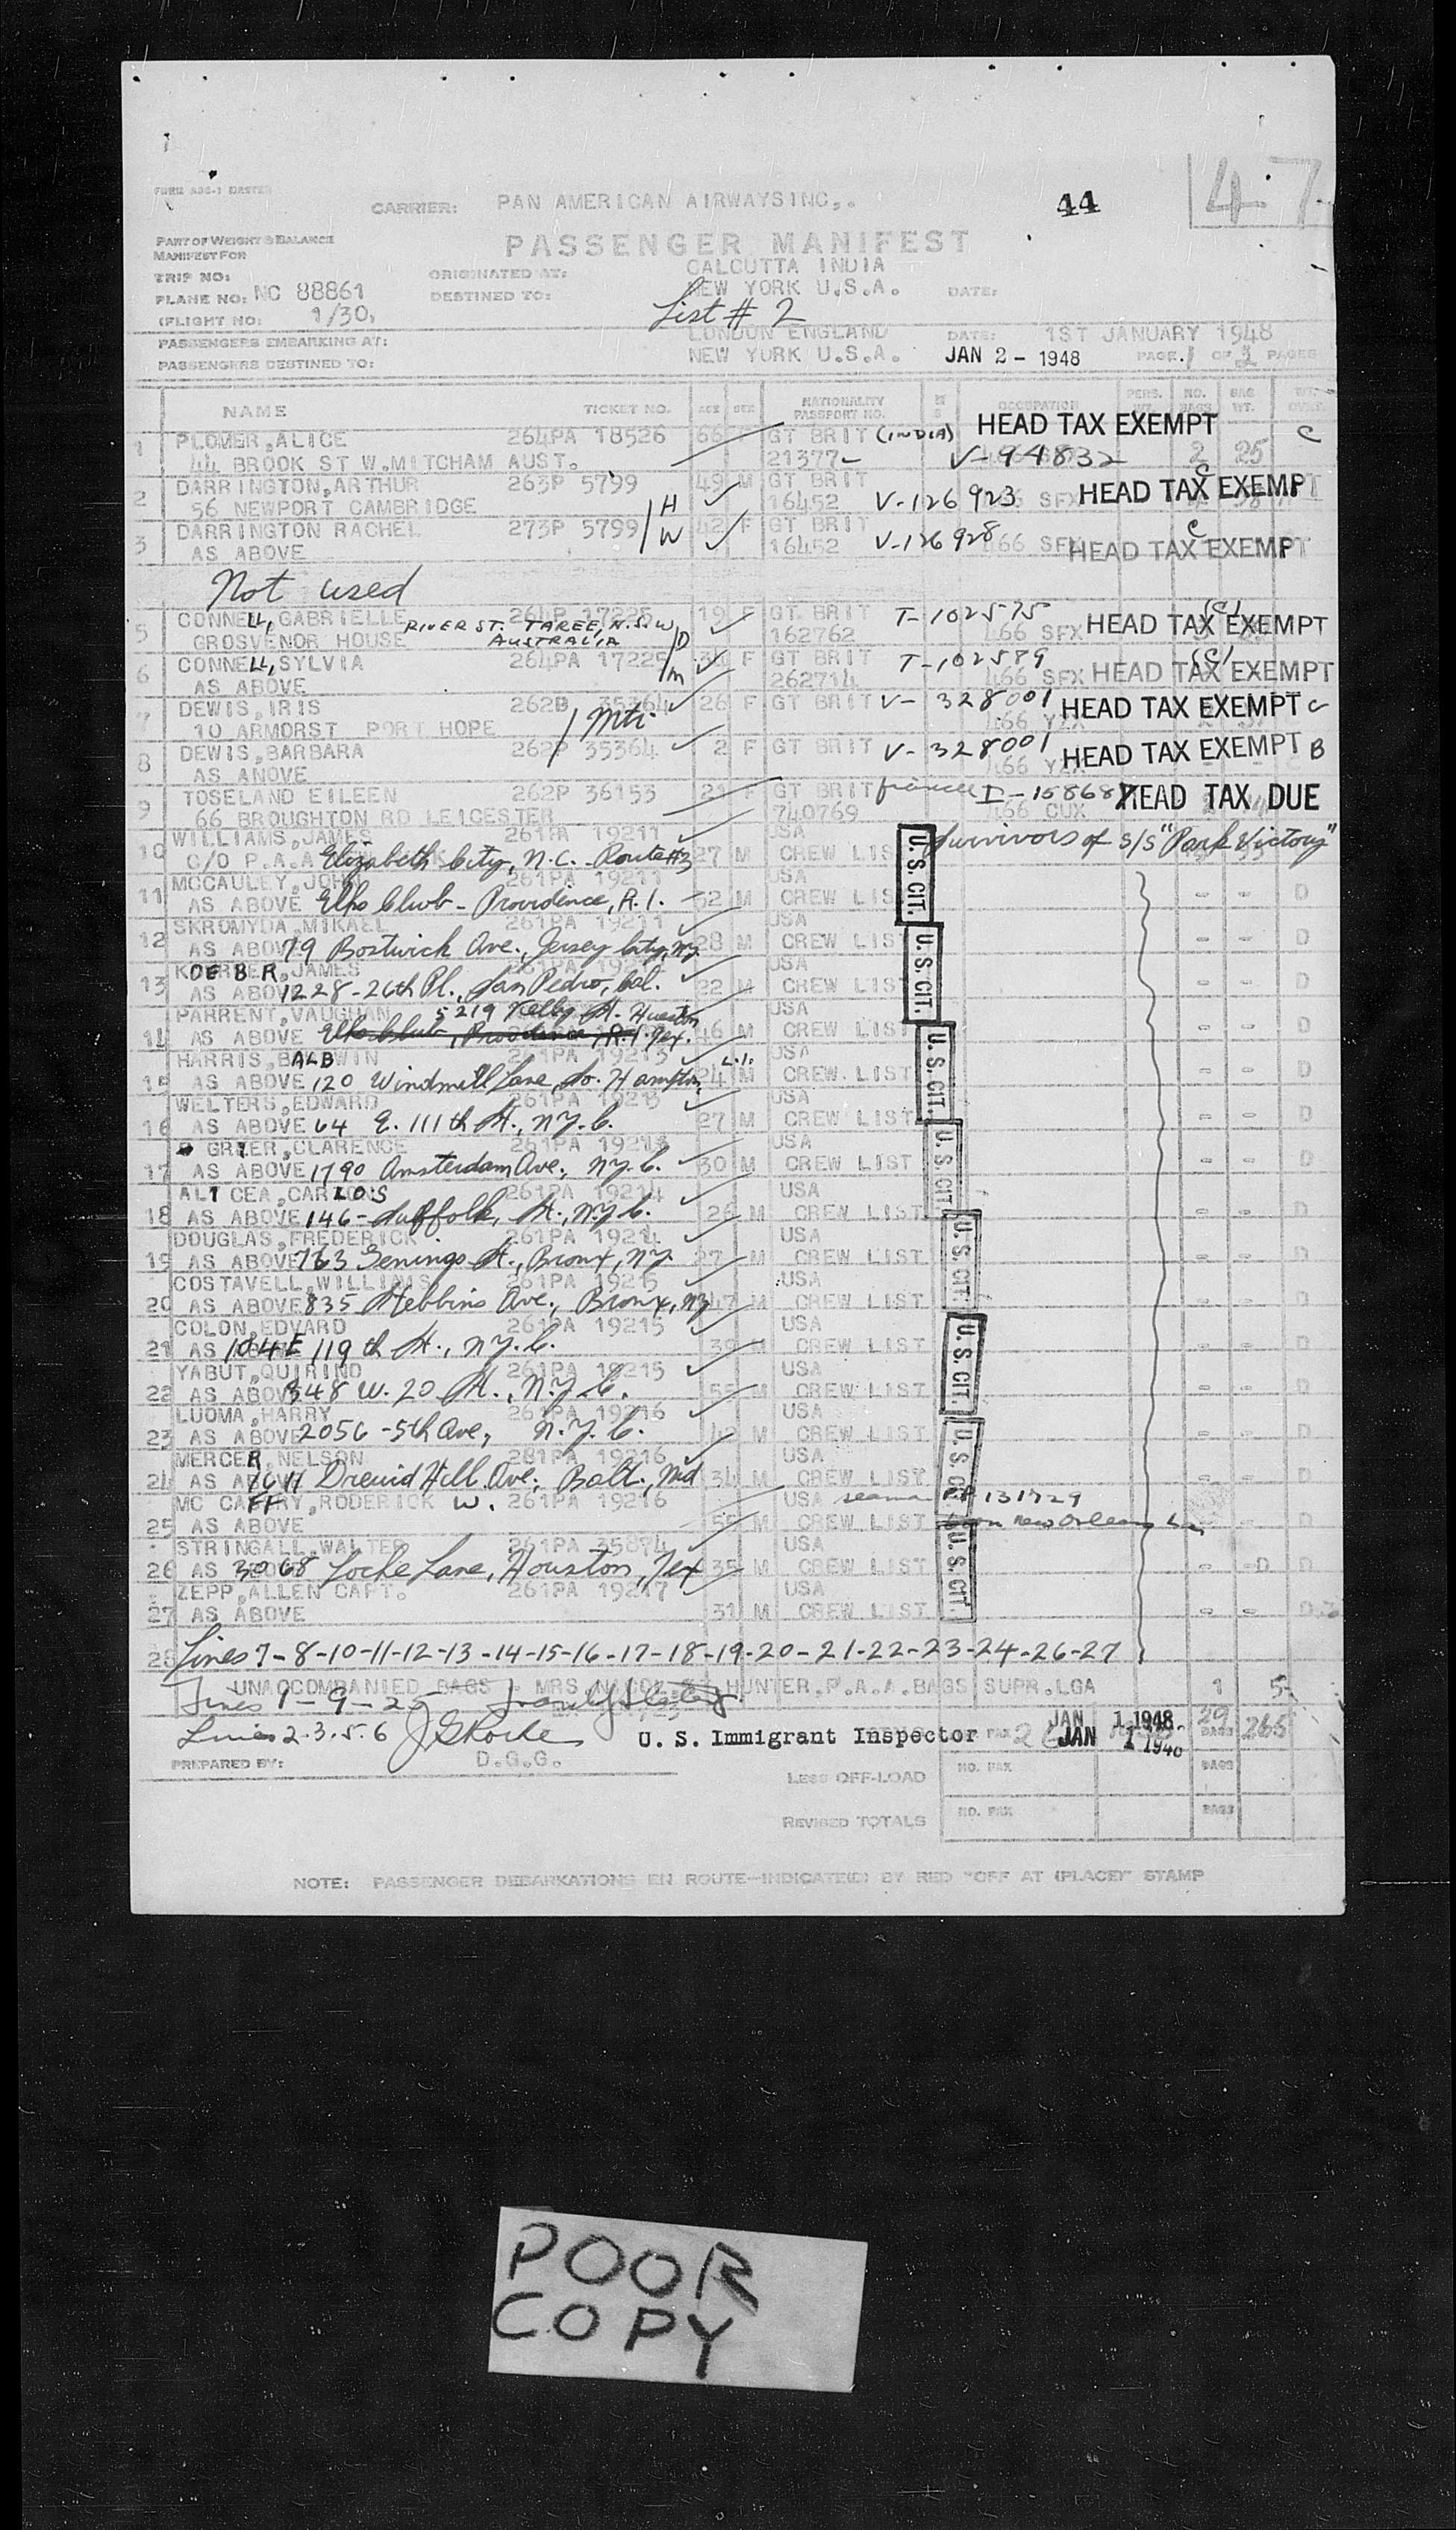 44
47
FORM
CARRIER: PAN AMERICAN AIRWAYS INC,.
PASSENGER MANIFEST
PART OF WEIGHT & BALANCE
MANIFEST FOR
TRIP NO:
PLANE NO: NC 88861
(FLIGHT NO: 1/30,
ORIGINATED AT: CALCUTTA INDIA
DESTINED TO: NEW YORK U.S.A. DATE:
List # 2
PASSENGERS EMBARKING AT: LONDON ENGLAND DATE: 1ST JANUARY 1948
PASSENGERS DESTINED TO: NEW YORK U.S.A. JAN 2 - 1948 PAGE 1 OF PAGES
NAME TICKET NO. AGE SEX NATIONALITY PASSPORT NO. OCCUPATION PERS. WT. NO. BAGS BAG WT.
1 PLOMER, ALICE 264PA 18526 66 GT BRIT (INDIA) HEAD TAX EXEMPT C
44 BROOK ST W.MITCHAM AUST. 21377- V-94832 2 25
2 DARRINGTON, ARTHUR 263P 5799 H 49 M GT BRIT C
56 NEWPORT CAMBRIDGE 16452 V-126923 SFX HEAD TAX EXEMPT
3 DARRINGTON RACHEL 273P 5799 W 42 F GT BRIT C
AS ABOVE 16452 V-126928 466 SFX HEAD TAX EXEMPT
Not used
5 CONNELL, GABRIELLE 264P 17225 19 F GT. BRIT T-102575 (C)
GROSVENOR HOUSE RIVER ST. TAREE, N.S.W. AUSTRALIA D 162762 466 SFX HEAD TAX EXEMPT
6 CONNELL, SYLVIA 264PA 17225 M F GT BRIT T-102579 (C)
AS ABOVE 262714 466 SFX HEAD TAX EXEMPT
7 DEWIS, IRIS 262B 35364 26 F GT BRIT V-328001 HEAD TAX EXEMPT C
10 ARMORST PORT HOPE
8 DEWIS, BARBARA 262P 35364 2 F GT BRIT V-328001 HEAD TAX EXEMPT B
AS ANOVE
9 TOSELAND EILEEN 262P 36153 21 F GT BRIT HEAD TAX DUE
66 BROUGHTON RD LEICESTER 740769 466 CUX
WILLIAMS, JAMES 261PA 19211 USA Survivors of S/S "Park Victory"
10 C/O P.A.A Elizabeth City, N.C. Route #3 27 M CREW LIST U.S. CIT.
MCCAULEY, JOHN 261PA 19211 USA
11 AS ABOVE Elks Club - Providence, R.I. 52 M CREW LIST - - D
SKROMYDA, MIKAEL 261PA 19211 USA
12 AS ABOVE 79 Bostwick Ave., Jersey City, NJ. 28 M CREW LIST U.S. CIT. - - D
KOERBER, JAMES USA
13 AS ABOVE 1228-26th Pl., San Pedro, Cal. 22 M CREW LIST - - D
PARRENT, VAUGHAN 5219 Kelby St. Huston Tex. USA
14 AS ABOVE Elks Club, Providence, R.I. 46 M CREW LIST U.S. CIT. - - D
HARRIS, BALDWIN 261PA 19213 USA
15 AS ABOVE 120 Windmill Lane, So. Hampton, L.I. 24 M CREW LIST - - D
WELTERS, EDWARD 261PA 19213 USA
16 AS ABOVE 64 E. 111th St., N.Y.C. 27 M CREW LIST - - D
GRIER, CLARENCE 261PA 19213 USA
17 AS ABOVE 1790 Amsterdam Ave., N.Y.C. 30 M CREW LIST U.S. CIT - - D
ALTCEA, CARLOS 261PA 19214 USA
18 AS ABOVE 146-Suffolk, St., N.Y.C. 26 M CREW LIST - - D
DOUGLAS, FREDERICK 261PA 19214 USA
19 AS ABOVE 763 Jenings St., Bronx, N.Y. 27 M CREW LIST U.S. CIT. - - D
COSTAVELL, WILLIAMS 261PA 19215 USA
20 AS ABOVE 835 Stebbins Ave., Bronx, NY 47 M CREW LIST - - D
COLON, EDVARD 261PA 19215 USA
21 AS ABOVE 104 E 119th St., N.Y.C. 39 M CREW LIST U.S. CIT. - - D
YABUT, QUIRINO 261PA 19215 USA
22 AS ABOVE 348 W. 20 St., N.Y.C. 55 M CREW LIST - - D
LUOMA, HARRY 261PA 19216 USA
23 AS ABOVE 2056-5th Ave, N.Y.C. 42 M CREW LIST U.S. CIT. - - D
MERCER, NELSON 261PA 19216 USA
24 AS ABOVE Druid Hill Ave., Balt., Md 34 M CREW LIST - - D
MC CAFFRY, RODERICK W. 261PA 19216 USA seaman 131729
25 AS ABOVE 55 M CREW LIST born New Orleans La D
STRINGALL, WALTER 261PA 35874 USA
26 AS 3068 Locke Lane, Houston, Tex 35 M CREW LIST U.S. CIT. - - D
ZEPP, ALLEN CAPT. 261PA 19217 USA
27 AS ABOVE 31 M CREW LIST - - D
28 Lines 7-8-10-11-12-13-14-15-16-17-18-19-20-21-22-23-24-26-27
UNACCOMPANIED BAGS HUNTER.P.A.A.BAGS SUPR.LGA 1 5
Lines 1-9-25
Lines 2.3.5.6 U. S. Immigrant Inspector JAN 1 1948 29 BAGS 265
JAN 1 1948
PREPARED BY: D.G.G.
LESS OFF-LOAD NO. PAX BAGS
REVISED TOTALS NO. PAX BAGS
NOTE: PASSENGER DEBARKATIONS EN ROUTE—INDICATE(D) BY RED "OFF AT (PLACE)" STAMP
POOR
COPY